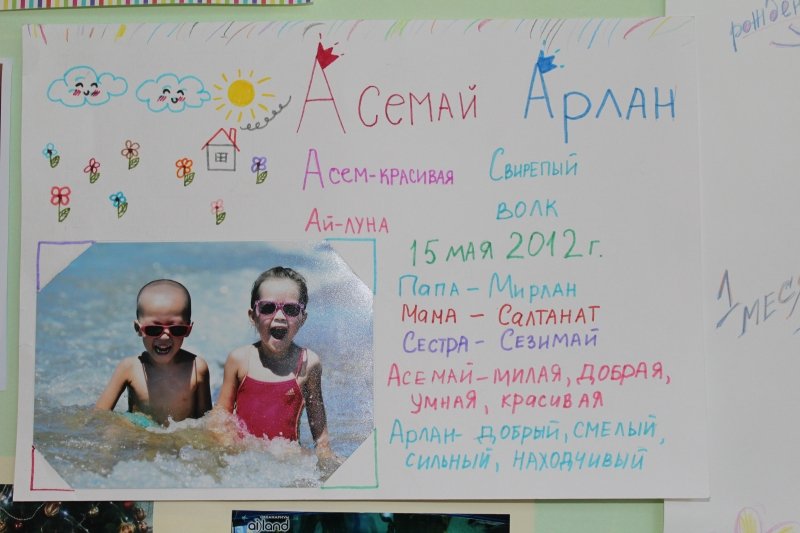 Асемай Арлан
Асем-красивая Свирепый
волк
Ай-луна
15 мая 2012 г.
Папа – Мирлан
Мама – Салтанат
Сестра – Сезимай
Асемай – милая, добрая,
умная, красивая
Арлан- добрый, смелый,
сильный, находчивый
1 меся
рожден
ailand